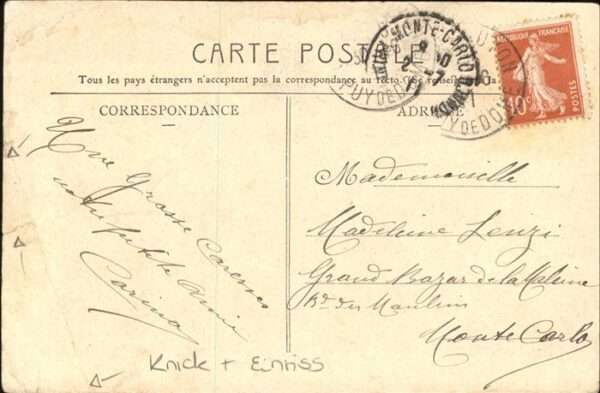 CARTE POSTALE
Tous les pays étrangers n'acceptent pas la correspondance au recto (Se renseigner à la
CORRESPONDANCE
ADRESSE
RÉPUBLIQUE FRANÇAISE
10c
POSTES
MONTE-CARLO
PUY DE DOME
PUY DE DOME
Une Grosse Caresse
petite amie
Carina
Mademoiselle
Madeleine Lenzi
Grand Bazar de la
Bd des Moulins
Monte Carlo
Knick + Einriss